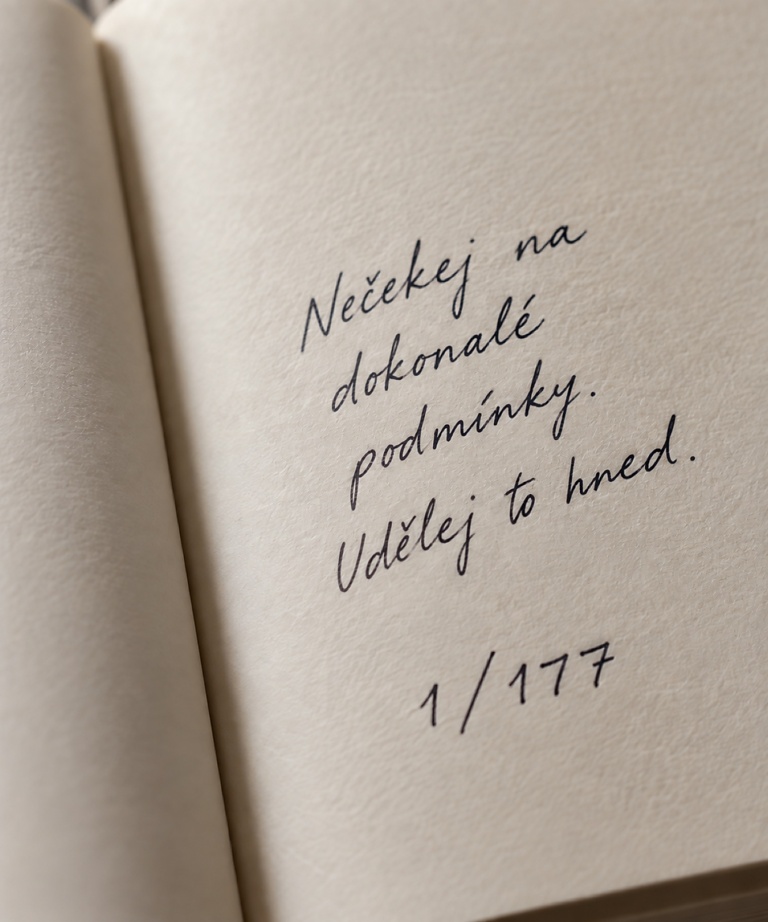 Nečekej na
dokonalé
podmínky.
Udělej to hned.
1/177